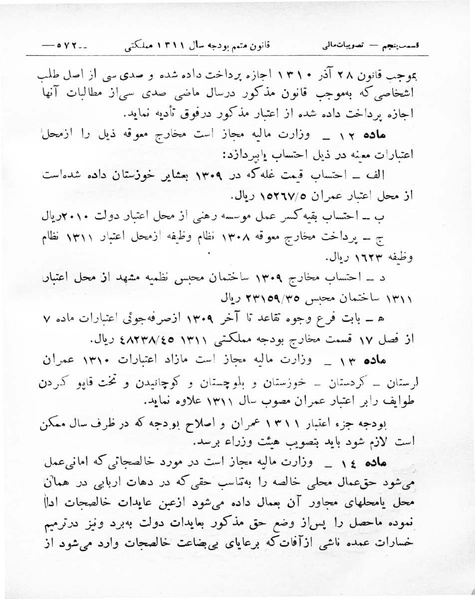 قسمت پنجم — تصویبات مالی قانون متمم بودجه سال ۱۳۱۱ مملکتی —۵۷۲—
بموجب قانون ۲۸ آذر ۱۳۱۰ اجازه پرداخت داده شده و صدی سی از اصل طلب
اشخاصی که بموجب قانون مذکور در سال ماضی صدی سی از مطالبات آنها
اجازه پرداخت داده شده از اعتبار مذکور در فوق تأدیه نماید.
ماده ۱۲ — وزارت مالیه مجاز است مخارج معوقه ذیل را از محل
اعتبارات معینه در ذیل احتساب یا بپردازد:
الف — احتساب قیمت غله که در ۱۳۰۹ بعشایر خوزستان داده شده است
از محل اعتبار عمران ۱۵۲۶۷/۵ ریال.
ب — احتساب بقیه کسر عمل موسسه رهنی از محل اعتبار دولت ۲۰۱۰ ریال
ج — پرداخت مخارج معوقه ۱۳۰۸ نظام وظیفه از محل اعتبار ۱۳۱۱ نظام
وظیفه ۱۶۲۳ ریال.
د — احتساب مخارج ۱۳۰۹ ساختمان محبس نظمیه مشهد از محل اعتبار
۱۳۱۱ ساختمان محبس ۲۳۱۵۹/۳۵ ریال
ه — بابت فرع وجوه تقاعد تا آخر ۱۳۰۹ از صرفه‌جوئی اعتبارات ماده ۷
از فصل ۱۷ قسمت مخارج بودجه مملکتی ۱۳۱۱ ۴۸۲۳۸/۴۵ ریال.
ماده ۱۳ — وزارت مالیه مجاز است مازاد اعتبارات ۱۳۱۰ عمران
لرستان — کردستان — خوزستان و بلوچستان و کوچانیدن و تخت قاپو کردن
طوایف را بر اعتبار عمران مصوب سال ۱۳۱۱ علاوه نماید.
بودجه جزء اعتبار ۱۳۱۱ عمران و اصلاح بودجه که در ظرف سال ممکن
است لازم شود باید بتصویب هیئت وزراء برسد.
ماده ۱۴ — وزارت مالیه مجاز است در مورد خالصجاتی که امانی عمل
می‌شود حق‌العمال محلی خالصه را بتناسب حقی که در دهات اربابی در همان
محل یا محلهای مجاور آن بعمال داده می‌شود از عین عایدات خالصجات ادا
نموده ماحصل را پس از وضع حق مذکور بعایدات دولت به‌برد و نیز در ترمیم
خسارات عمده ناشی از آفات که برعایای بی‌بضاعت خالصجات وارد می‌شود از